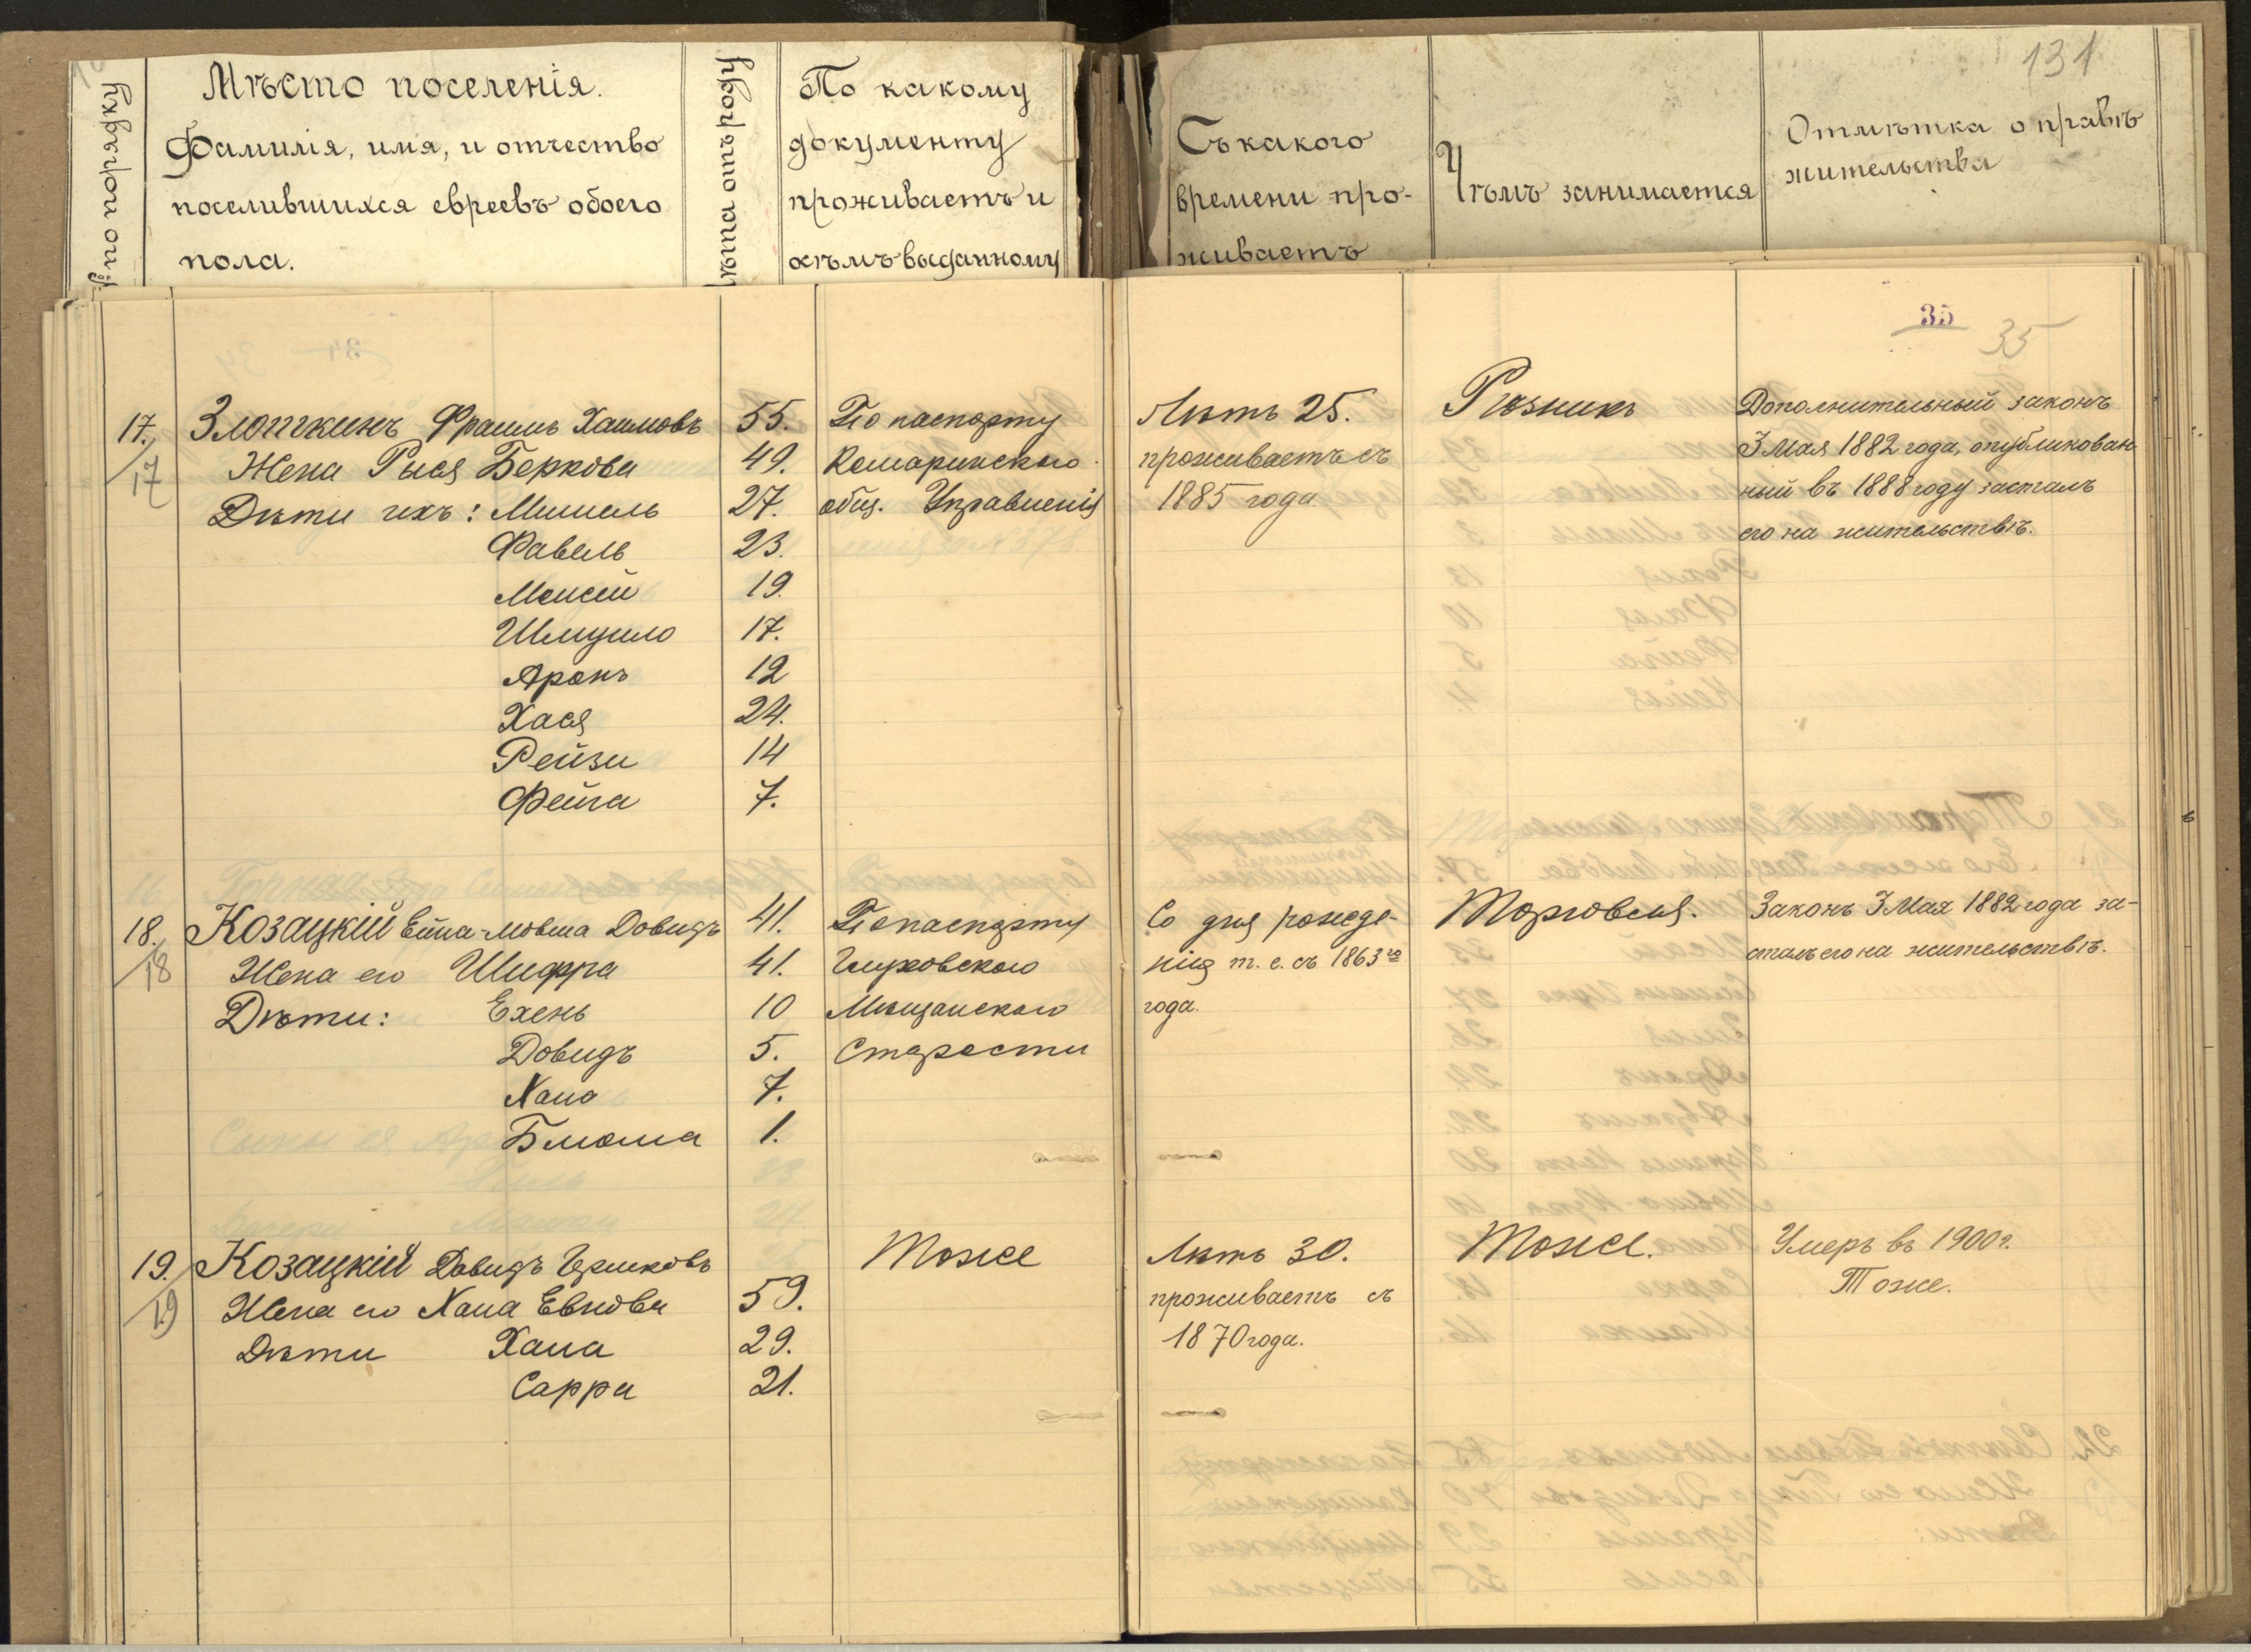 131
№ по порядку
Мѣсто поселенія.
Фамилія, имя, и отчество
поселившихся евреевъ обоего
пола.
Лѣта отъ роду
По какому
документу
проживаетъ и
кѣмъ выданному
Съ какого
времени про-
живаетъ
Чѣмъ занимается
Отмѣтка о правѣ
жительства
35
35
17. Злоткинъ Фраимъ Хаимовъ 55. По паспорту Лѣтъ 25. Рѣзникъ Дополнительный законъ
17 Жена Рыся Беркова 49. Комаринскаго проживаетъ съ 3 Мая 1882 года, опубликован-
Дѣти ихъ: Мишель 27. общ. Управленія 1885 года ный въ 1888 году засталъ
Фавель 23. его на жительствѣ.
Моисей 19.
Шмуило 17.
Аронъ 12
Хася 24.
Рейзи 14
Фейга 7.
18. Козацкій Ейна-Мовша Довидъ 41. По паспорту Со дня рожде- Торговля. Законъ 3 Мая 1882 года за-
18 Жена его Шифра 41. Глуховскаго нія т. е. съ 1863 го сталъ его на жительствѣ.
Дѣти: Ехень 10 Мѣщанскаго года.
Довидъ 5. Старосты
Хана 7.
Блюма 1.
19. Козацкій Довидъ Гершковъ Тоже Лѣтъ 30. Тоже. Умеръ въ 1900 г.
19 Жена его Хана Евнова 59. проживаетъ съ Тоже.
Дѣти Хана 29. 1870 года.
Сарра 21.